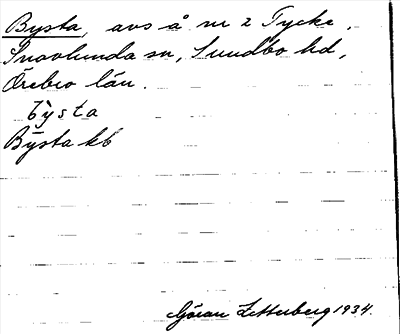 Bysta, avs å nr 2 Tycke,
Snavlunda sn, Sundbo hd,
Örebro län.
bysta
Bysta kb
Göran Zetterberg 1934.